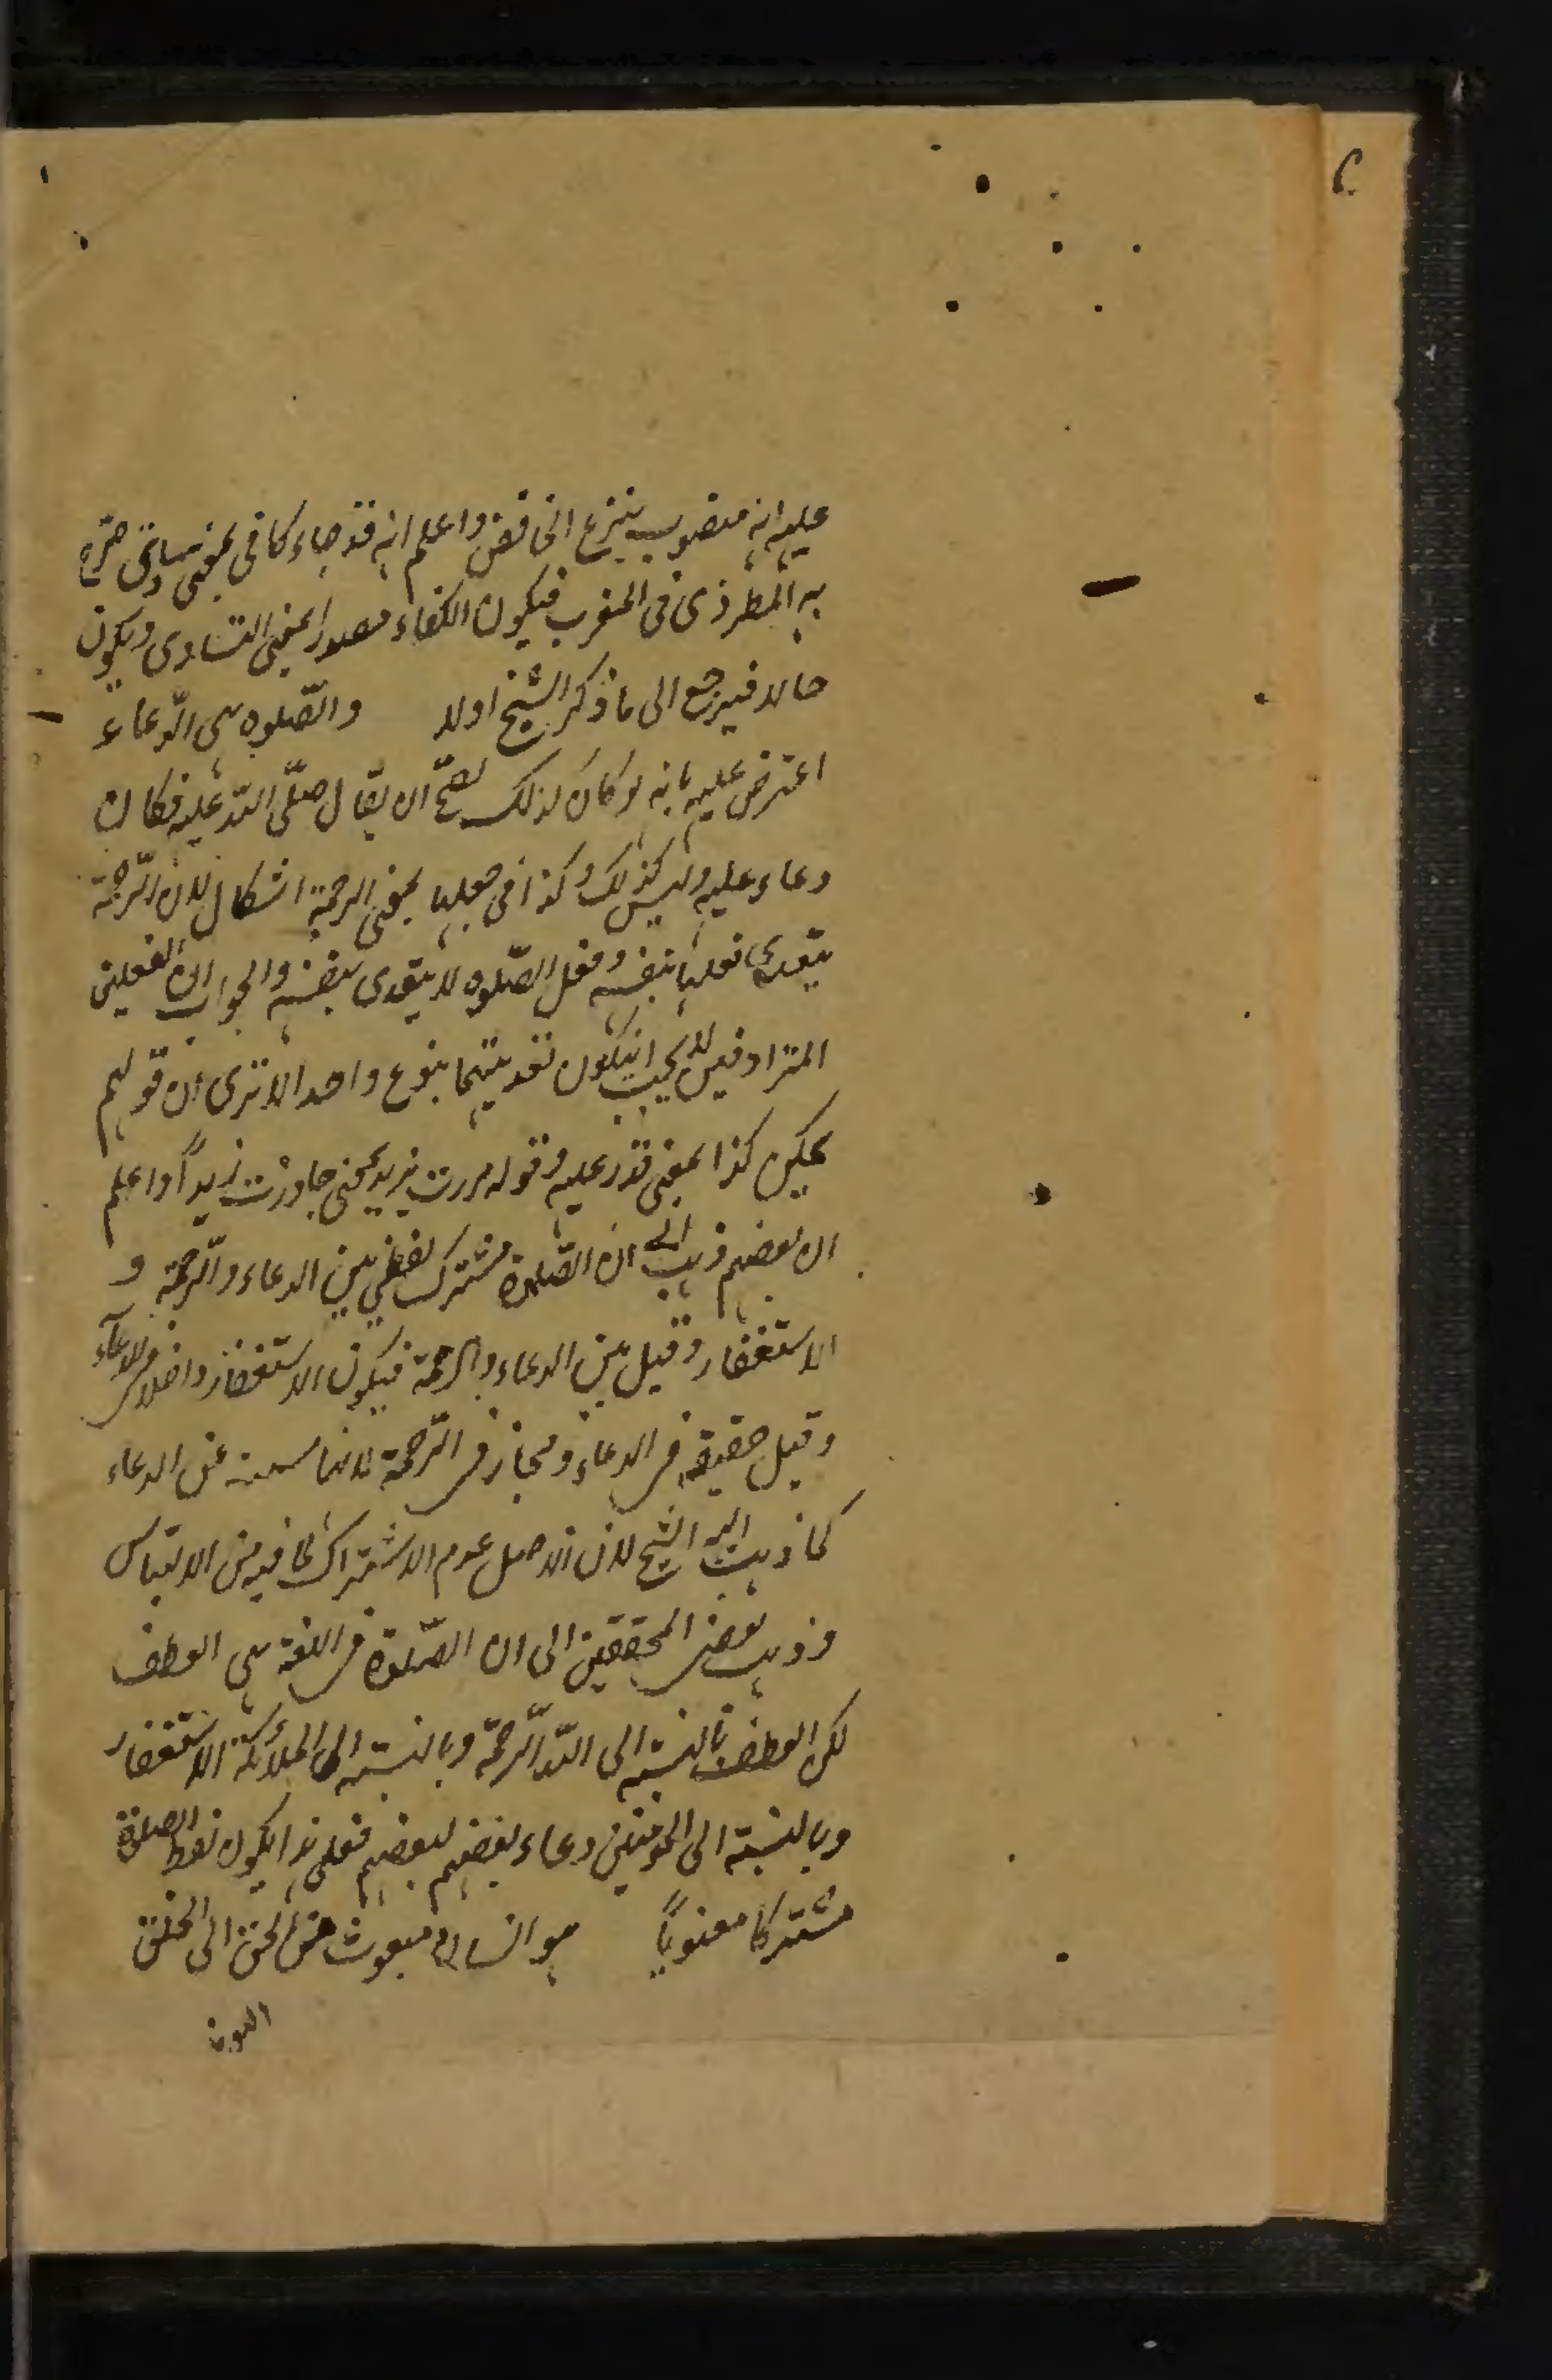 عليه انه منصوب بنزع الخافض واعلم انه قد جاء كافى بمعنى ساوى صرّح
به المطرزى فى المغرب فيكون الكفاء مصدرا بمعنى التساوى ويكون
حالا فيرجع الى ما ذكر الشيخ اولا والصّلوه هى الدّعاء
اعترض عليه بانه لو كان كذلك لصحّ ان يقال صلّى اللّه عليه فكان
دعاء عليه وليس كذلك وكذا فى جعلها بمعنى الرحمة اشكال لان الرّحمة
يتعدى فعلها بنفسه وفعل الصّلوه لا يتعدى بنفسه والجواب ان الفعلين
المترادفين لا يجب ان يكون تعديتهما بنوع واحد الا ترى ان قولهم
يمكن كذا بمعنى قدر عليه وقوله مررت بزيد بمعنى جاوزت زيداً واعلم
ان بعضهم ذهب الى ان الصّلوة مشترك لفظي بين الدعاء والرّحمة و
الاستغفار وقيل بين الدعاء والرحمة فيكون الاستغفار داخلا فى الدعآء
وقيل حقيقة فى الدعاء ومجاز فى الرّحمة لانها عن الدعاء
كما ذهب اليه الشيخ لان الاصل عدم الاشتراك لما فيه من الالتباس
وذهب بعض المحققين الى ان الصّلوة فى اللغة هى العطف
لكن العطف بالنسبة الى اللّه الرّحمة وبالنسبة الى الملائكة الاستغفار
وبالنسبة الى المؤمنين دعاء بعضهم لبعضهم فعلى هذا يكون لفظ الصلوة
مشتركا معنوياً هو انسان مبعوث من الحق الى الخلق